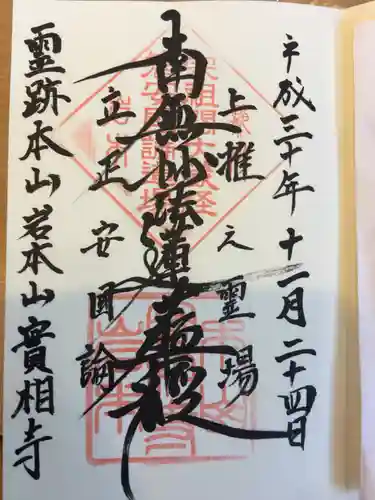 平成三十年十一月二十四日
上擢之霊場
南無妙法蓮華経
立正安国論
霊跡本山岩本山實相寺